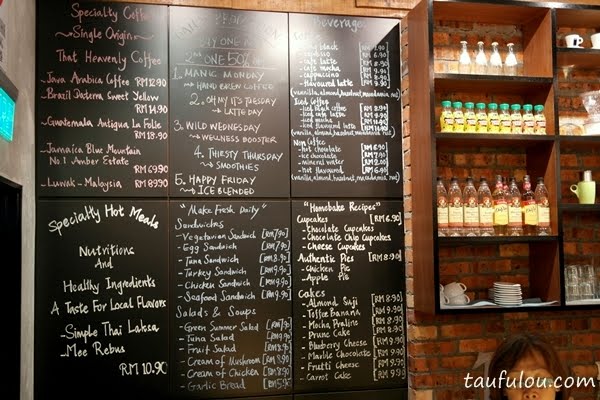 Specialty Coffee
~Single Origin~
That Heavenly Coffee
- Java Arabica Coffee RM 12.90
- Brazil Daterra Sweet Yellow
RM 14.90
- Guatemala Antigua La Folle
RM 18.90
- Jamaica Blue Mountain
No 1 Amber Estate
RM 69.90
- Luwak - Malaysia RM 89.90
BUY ONE
2nd ONE 50%
1. MANIC MONDAY
HAND BREW COFFEE
2. OH MY IT'S TUESDAY
LATTE DAY
3. WILD WEDNESDAY
WELLNESS BOOSTER
4. THIRSTY THURSDAY
SMOOTHIES
5. HAPPY FRIDAY
ICE BLENDED
Beverage
- espresso
- cafe latte
- cafe mocha
- cappuccino
- flavoured latte
(vanilla, almond, hazelnut, macadamia nut)
Iced Coffee
- Iced black coffee
- Iced cafe latte
- Iced cafe mocha
- Iced flavoured latte
(vanilla, almond, hazelnut, macadamia nut)
Non Coffee
- hot chocolate
- ice chocolate
- mineral water
- hot flavoured
(vanilla, almond, hazelnut, macadamia nut)
Specialty Hot Meals
Nutritions
And
Healthy Ingredients
A Taste For Local Flavors
- Simple Thai Laksa
- Mee Rebus
RM 10.90
"Make Fresh Daily"
Sandwichs
- Vegetarian Sandwich [RM 7.90]
- Egg Sandwich [RM 7.90]
- Tuna Sandwich [RM 8.90]
- Turkey Sandwich [RM 9.90]
- Chicken Sandwich [RM 9.90]
- Seafood Sandwich [RM 9.90]
Salads & Soups
- Green Summer Salad [RM 7.90]
- Tuna Salad [RM 9.90]
- Fruit Salad
- Cream of Mushroom [RM 8.90]
- Cream of Chicken [RM 8.90]
- Garlic Bread [RM 5.90]
"Homebake Recipes"
Cupcakes [RM 6.90]
- Chocolate Cupcakes
- Chocolate Chip Cupcakes
- Cheese Cupcakes
Authentic Pies [RM 9.90]
- Chicken Pie
- Apple Pie
Cakes
- Almond Suji [RM 8.90]
- Toffee Banana [RM 8.90]
- Mocha Praline [RM 8.90]
- Prune Cake [RM 8.90]
- Blueberry Cheese [RM 9.90]
- Marble Chocolate [RM 8.90]
- Frutti Cheese [RM 9.90]
- Carrot Cake [RM 8.90]
taufulou.com